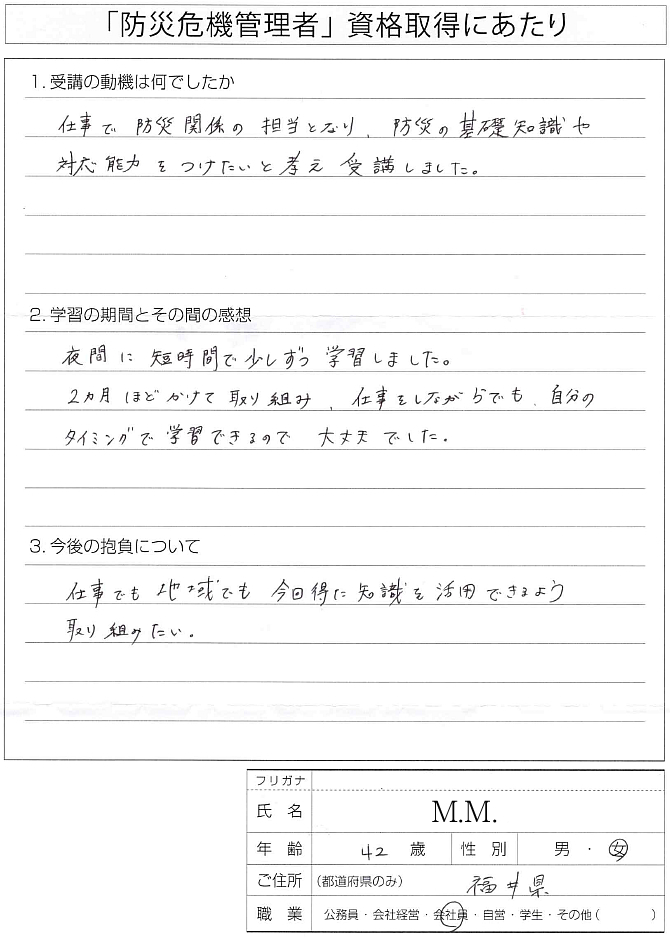 「防災危機管理者」資格取得にあたり
1. 受講の動機は何でしたか
仕事で 防災関係の 担当となり、防災の基礎知識や
対応能力をつけたいと考え 受講しました。
2. 学習の期間とその間の感想
夜間に 短時間で少しずつ 学習しました。
2ヵ月ほどかけて 取り組み、仕事をしながらでも、自分の
タイミングで学習できるので 大丈夫でした。
3. 今後の抱負について
仕事でも 地域でも 今回得た知識を活用できるよう
取り組みたい。
フリガナ
氏 名 M.M.
年 齢 42 歳 性 別 男 ・ 女
ご住所 (都道府県のみ) 福井県
職 業 公務員・会社経営・会社員・自営・学生・その他( )